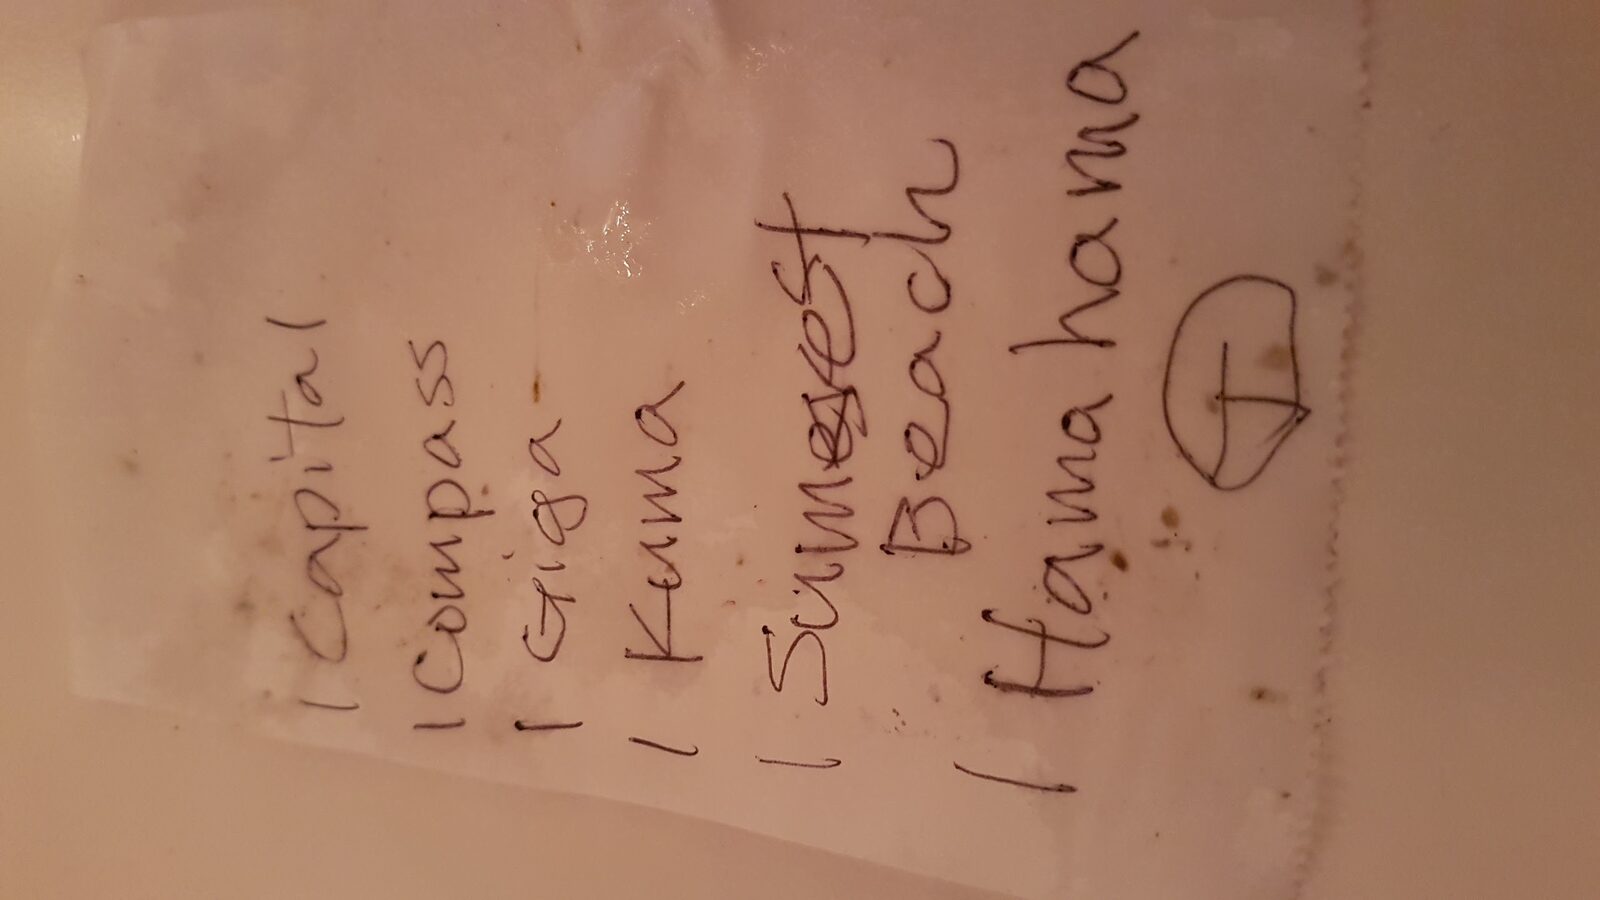 1 Capital
1 Compass
1 Giga
1 Kuma
1 Sunset
Beach
1 Hama hama